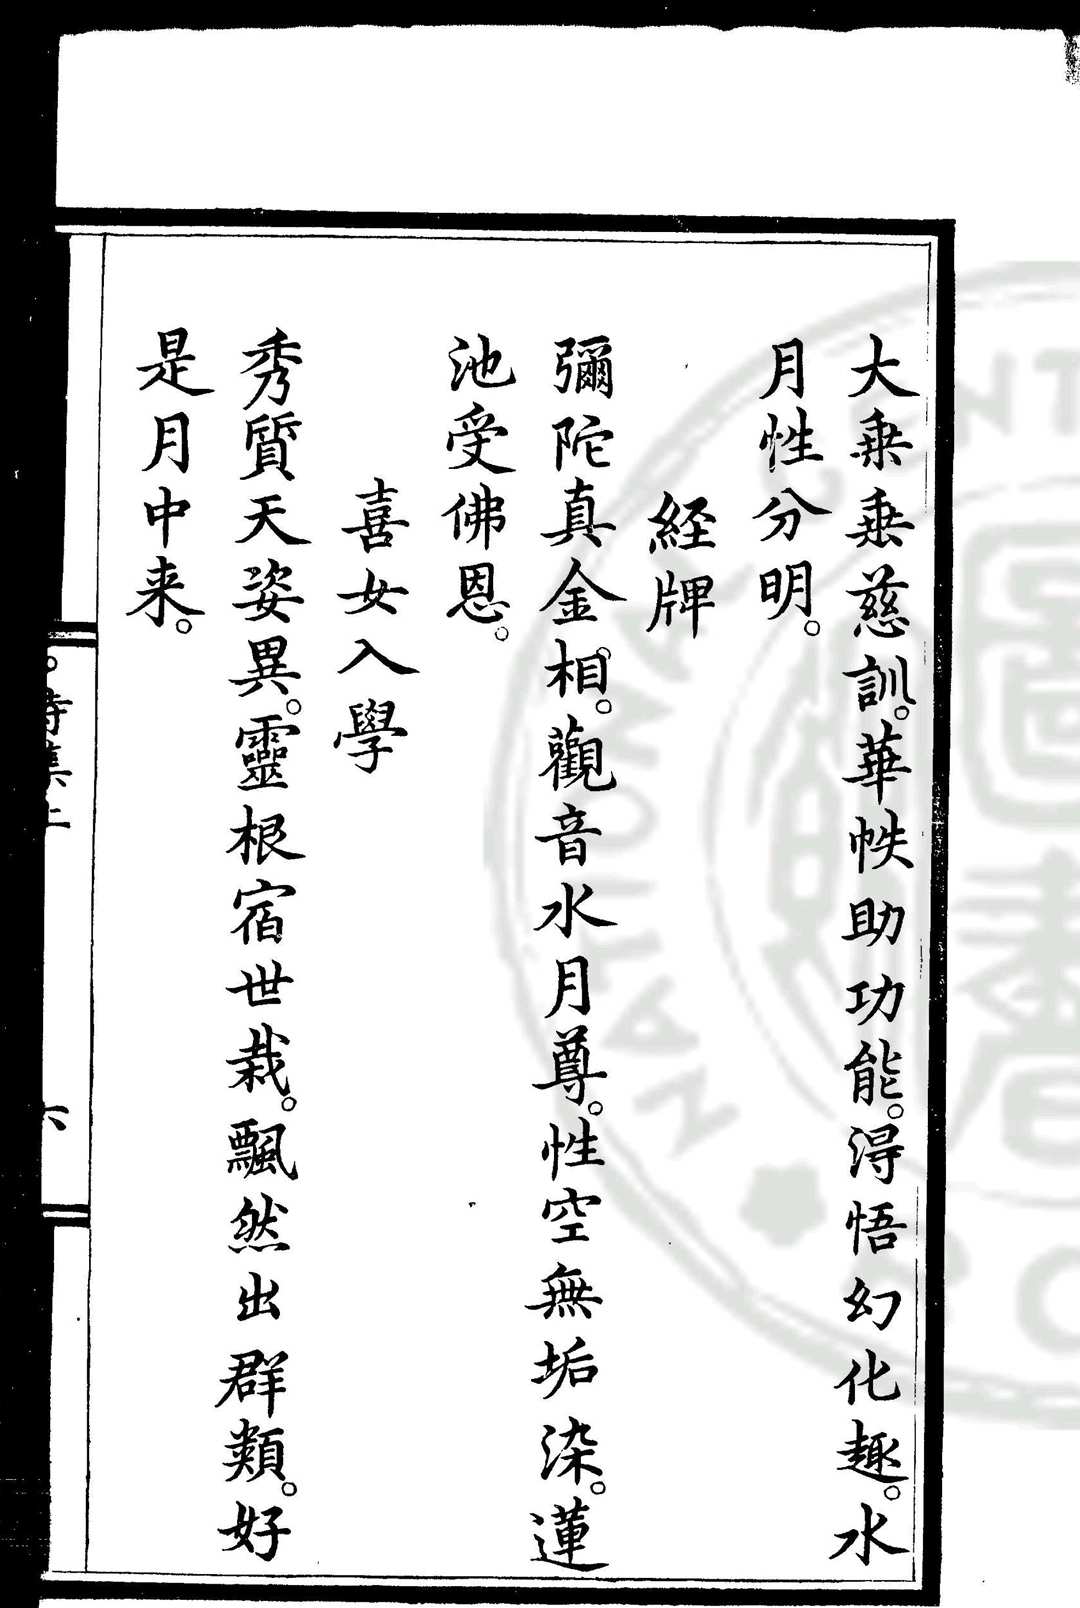 大乘垂慈訓。華帙助功能。得悟幻化趣。水
月性分明。
経牌
彌陀真金相。觀音水月尊。性空無垢染。蓮
池受佛恩。
喜女入學
秀質天姿異。靈根宿世栽。飄然出群類。好
是月中来。
詩集上
六